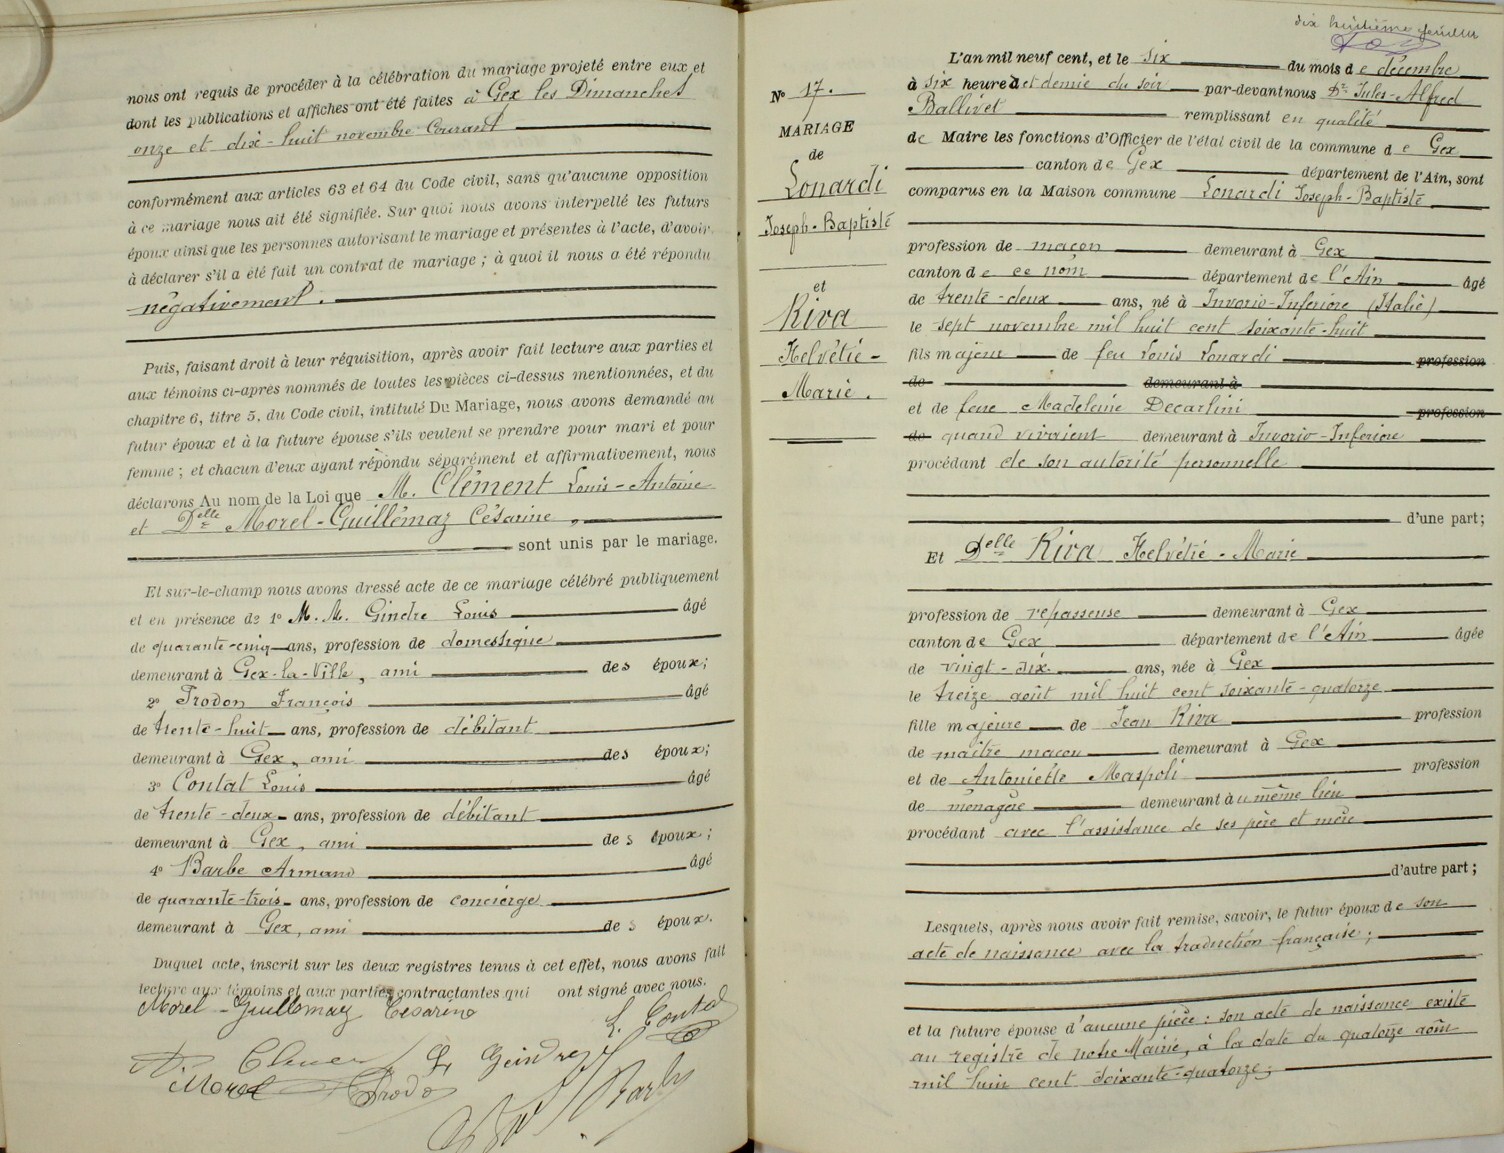 nous ont requis de procéder à la célébration du mariage projeté entre eux et
dont les publications et affiches ont été faites à Gex les Dimanches
onze et dix-huit novembre courant
conformément aux articles 63 et 64 du Code civil, sans qu'aucune opposition
à ce mariage nous ait été signifiée. Sur quoi nous avons interpellé les futurs
époux ainsi que les personnes autorisant le mariage et présentes à l'acte, d'avoir
à déclarer s'il a été fait un contrat de mariage ; à quoi il nous a été répondu
négativement.
Puis, faisant droit à leur réquisition, après avoir fait lecture aux parties et
aux témoins ci-après nommés de toutes les pièces ci-dessus mentionnées, et du
chapitre 6, titre 5, du Code civil, intitulé Du Mariage, nous avons demandé au
futur époux et à la future épouse s'ils veulent se prendre pour mari et pour
femme ; et chacun d'eux ayant répondu séparément et affirmativement, nous
déclarons Au nom de la Loi que M. Clément Louis-Antoine
et Delle Morel-Guillémaz Césarine,
sont unis par le mariage.
Et sur-le-champ nous avons dressé acte de ce mariage célébré publiquement
et en présence de 1° M. M. Gindre Louis âgé
de quarante-cinq ans, profession de domestique
demeurant à Gex-la-Ville, ami des époux ;
2° Trodon François âgé
de trente-huit ans, profession de débitant
demeurant à Gex, ami des époux ;
3° Contat Louis âgé
de trente-deux ans, profession de débitant
demeurant à Gex, ami des époux ;
4° Barbe Armand âgé
de quarante-trois ans, profession de concierge
demeurant à Gex, ami des époux.
Duquel acte, inscrit sur les deux registres tenus à cet effet, nous avons fait
lecture aux témoins et aux parties contractantes qui ont signé avec nous.
Morel-Guillemaz Cesarine
L. Contat
Gindre
Morel
Trodo
Barbe
dix huitième feuillet
N° 17.
MARIAGE
de
Lonardi
Joseph-Baptiste
et
Riva
Helvétie-
Marie.
L'an mil neuf cent, et le six du mois de décembre
à six heures et demie du soir par-devant nous Dr. Jules-Alfred
Ballivet remplissant en qualité
de Maire les fonctions d'Officier de l'état civil de la commune de Gex
canton de Gex département de l'Ain, sont
comparus en la Maison commune Lonardi Joseph-Baptiste
profession de maçon demeurant à Gex
canton de ce nom département de l'Ain âgé
de trente-deux ans, né à Invorio-Inferiore (Italie)
le sept novembre mil huit cent soixante-huit
fils majeur de feu Louis Lonardi profession
de demeurant à
et de feue Madeleine Decarlini profession
de quand vivaient demeurant à Invorio-Inferiore
procédant de son autorité personnelle
d'une part ;
Et Delle Riva Helvétie-Marie
profession de repasseuse demeurant à Gex
canton de Gex département de l'Ain âgée
de vingt-six ans, née à Gex
le treize août mil huit cent soixante-quatorze
fille majeure de Jean Riva profession
de maître maçon demeurant à Gex
et de Antoniette Maspoli profession
de ménagère demeurant au même lieu
procédant avec l'assistance de ses père et mère
d'autre part ;
Lesquels, après nous avoir fait remise, savoir, le futur époux de son
acte de naissance avec la traduction française ;
et la future épouse d'aucune pièce : son acte de naissance existe
au registre de notre Mairie, à la date du quatorze août
mil huit cent soixante-quatorze ;